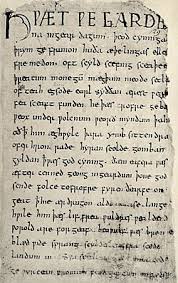 HǷÆT ǷE GARDE
na ingear dagum. þeod cyninga
þrym ge frunon huða æþelingas elle
fremedon. oft scyld scefing sceaþe
þreatum monegū mægþum meodo setl
of teah egsode eorl syððan ærest ƿear
fea sceaft funden he þæs frofre geba
ƿeox under ƿolcnum ƿeorð myndum þah
oð þ him æghƿylc þara ymb sittendra
ofer hron rade hyran scolde gomban
gyldan þ ƿæs god cyning. ðæm eafera ƿæs
æfter cenned geong in geardum þone god
sende folce tofrofre fyren ðearfe on
geat þ hie ær drugon aldor ase. lange
hƿile him þæs lif frea ƿuldres ƿealdend
ƿorold are for geaf. beoƿulf ƿæs breme
blæd ƿide sprang scyldes eafera scede
landum in. sceal uma gode
ge ƿyrcean fromum feoh giftum